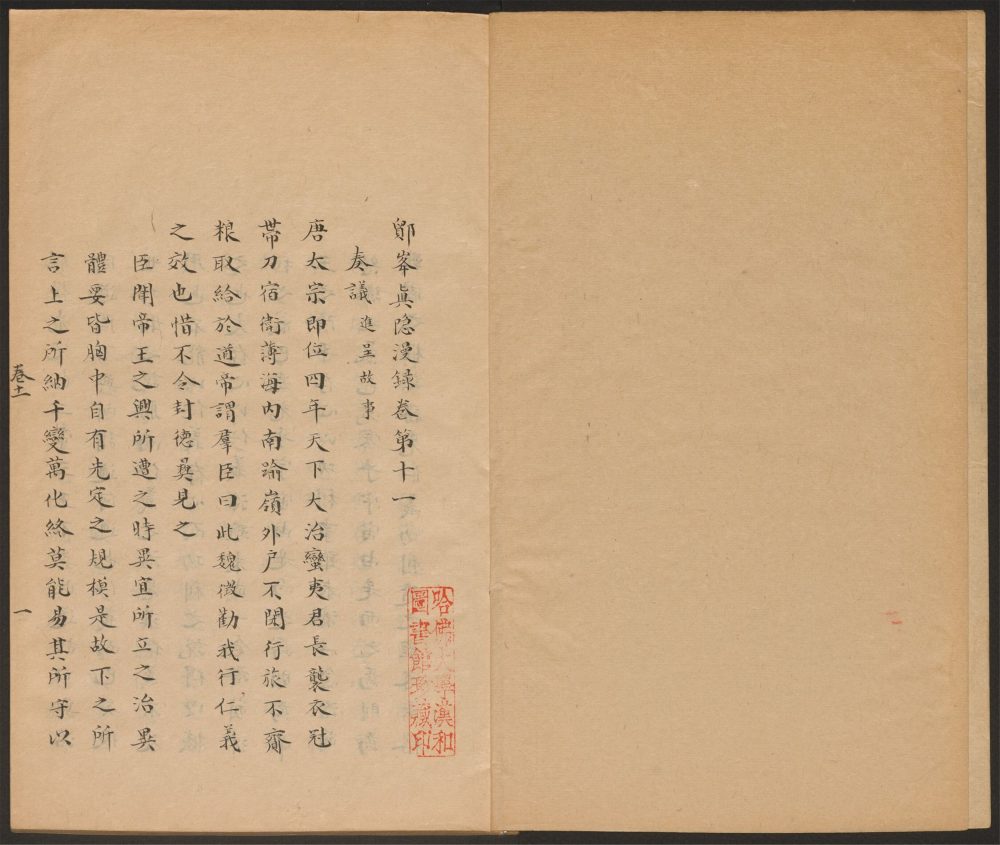 鄮峯眞隐漫録卷第十一
奏議進呈故事
唐太宗即位四年天下大治蠻夷君長襲衣冠
帶刀宿衞薄海內南踰嶺外户不閉行旅不齎
粮取給於道帝謂羣臣曰此魏徵勸我行仁義
之效也惜不令封德彝見之
臣聞帝王之興所遭之時異宜所立之治異
體要皆胸中自有先定之規模是故下之所
言上之所納千變萬化終莫能易其所守以
卷十一
一
哈佛大學漢和
圖書館珍藏印